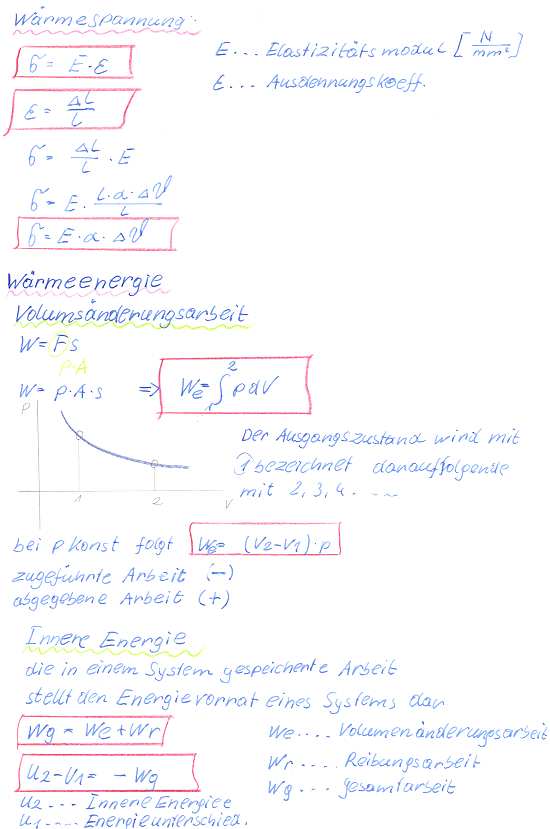 Wärmespannung:
σ = E · ε
E ... Elastizitätsmodul [N/mm²]
ε = ΔL/L
ε ... Ausdennungskoeff.
σ = ΔL/L · E
σ = E · L·α·Δϑ/L
σ = E · α · Δϑ
Wärmeenergie
Volumsänderungsarbeit
W = F s
p·A
W = p·A·s => We = ∫₁² p dV
p
1 2 V
Der Ausgangszustand wird mit
① bezeichnet darauffolgende
mit 2, 3, 4. ...
bei p konst folgt We = (V2-V1)·p
zugeführte Arbeit (-)
abgegebene Arbeit (+)
Innere Energie
die in einem System gespeicherte Arbeit
stellt den Energievorrat eines Systems dar
Wg = We + Wr
We .... Volumenänderungsarbeit
Wr .... Reibungsarbeit
U2 - U1 = - Wg
Wg ... gesamtarbeit
U2 ... Innere Energiee
U1 .... Energieunterschied.